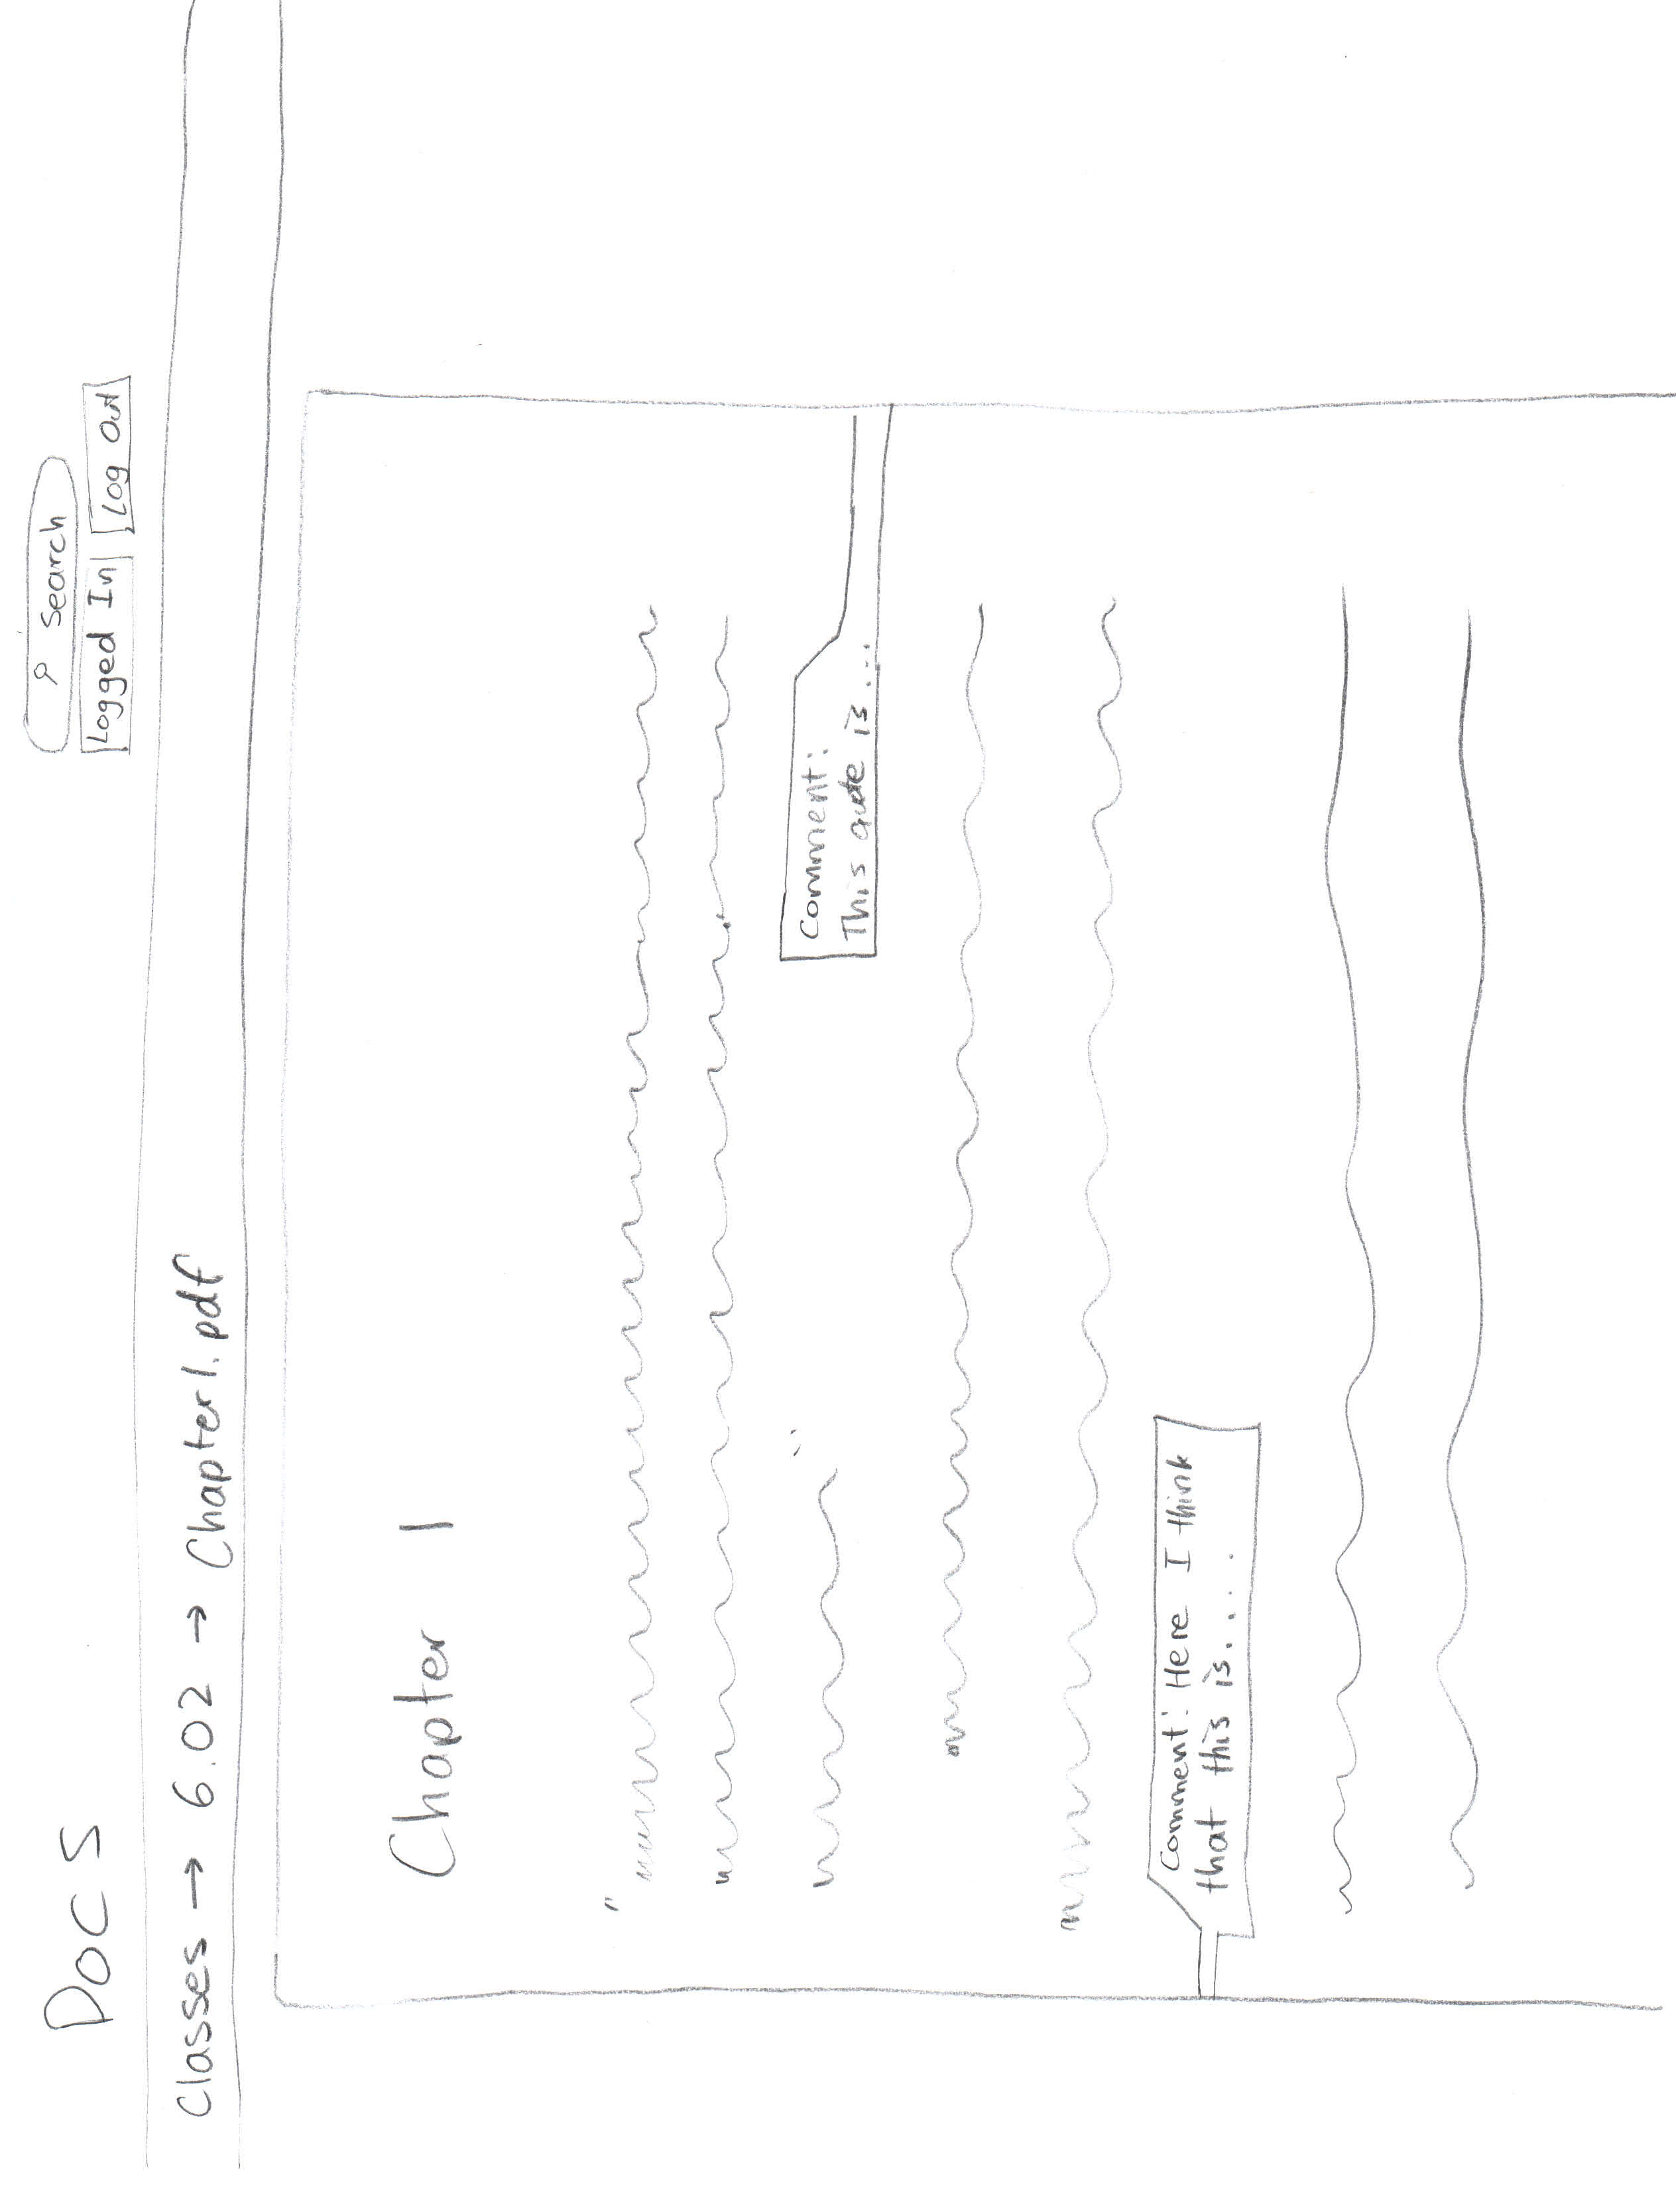 DOCS
search
Logged In
Log Out
Classes → 6.02 → Chapter1.pdf
Chapter 1
Comment:
This quote is...
Comment: Here I think
that this is....